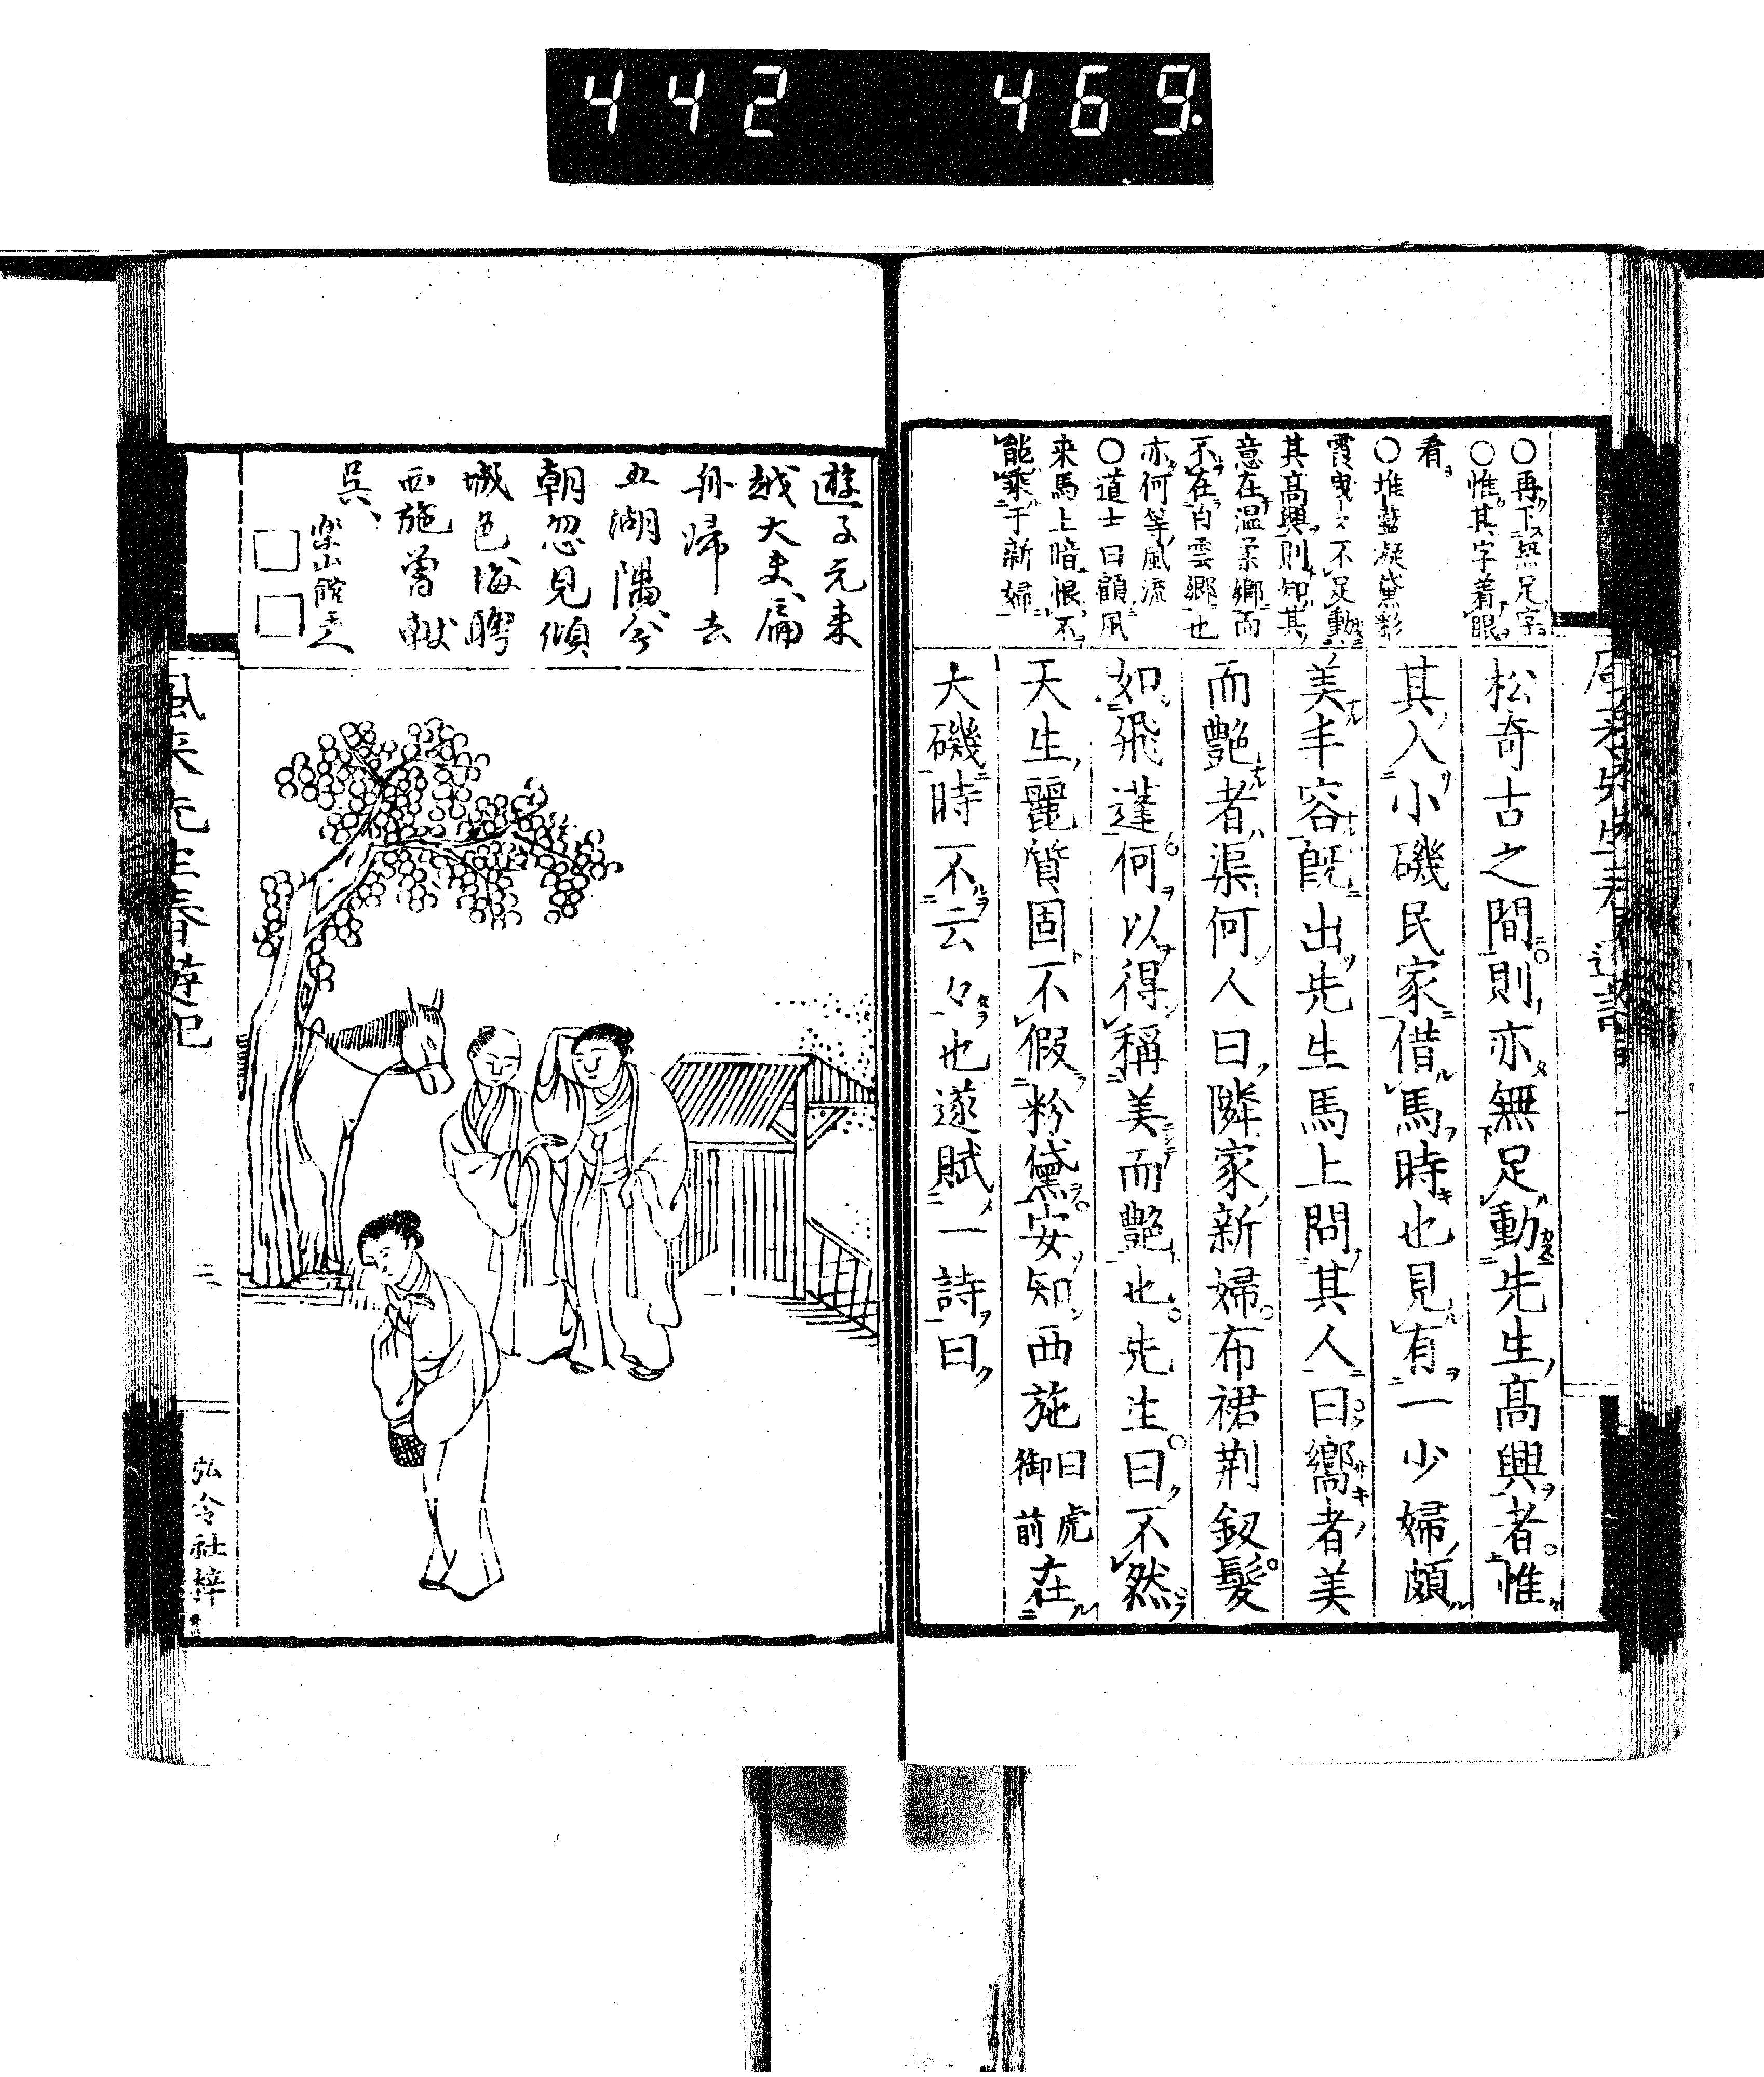 442 469.
○再下無足字
○惟其字着眼
看
○堆藍凝黛彩
霞曳々不足動
其髙興則知其
意在温柔郷而
不在白雲郷也
亦何等風流
○道士曰顧風
来馬上暗恨不
能乘于新婦
松奇古之間則亦無足動先生髙興者惟
其入小磯民家借馬時也見有一少婦頗
美丰容既出先生馬上問其人曰嚮者美
而艶者渠何人曰隣家新婦布裙荆釵髮
如飛蓬何以得稱美而艶也先生曰不然
天生麗質固不假粉黛安知西施曰虎御前在
大磯時不云々也遂賦一詩曰
遊子元来
越大夫扁
舟帰去
五湖隅今
朝忽見傾
城色悔聘
西施曽献
呉
楽山館主人
風来先生春遊記
二
弘令社梓